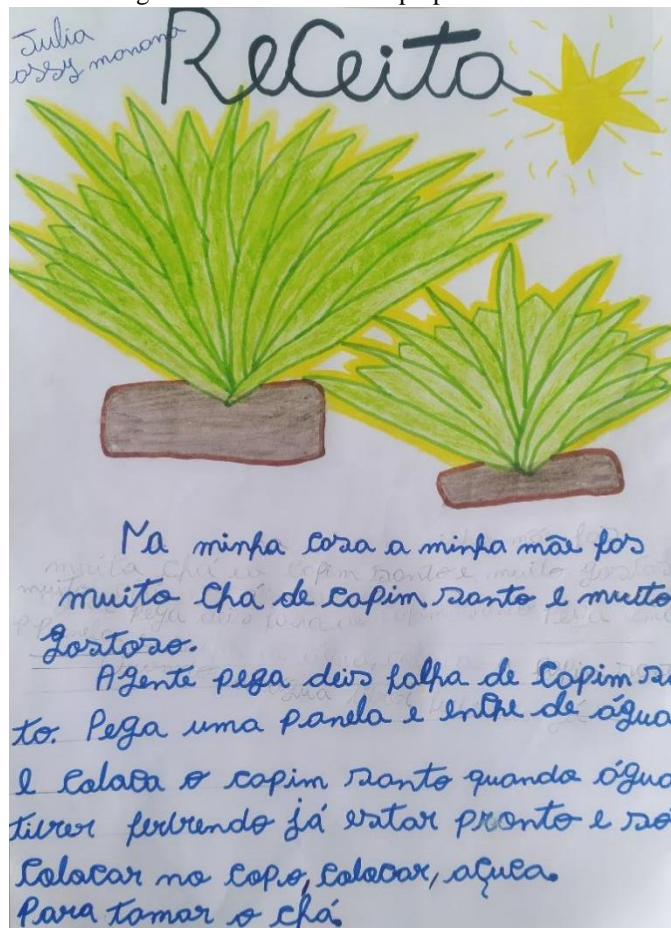 Julia
Receita
Na minha casa a minha mãe fas
muito chá de capim santo e muito
gostoso.
A gente pega deis folha de capim sa
to. Pega uma panela e enche de água
e colaca o capim santo quando água
tiver ferbendo já estar pronto e só
colocar no copo, colocar, açuca.
Para tomar o chá.